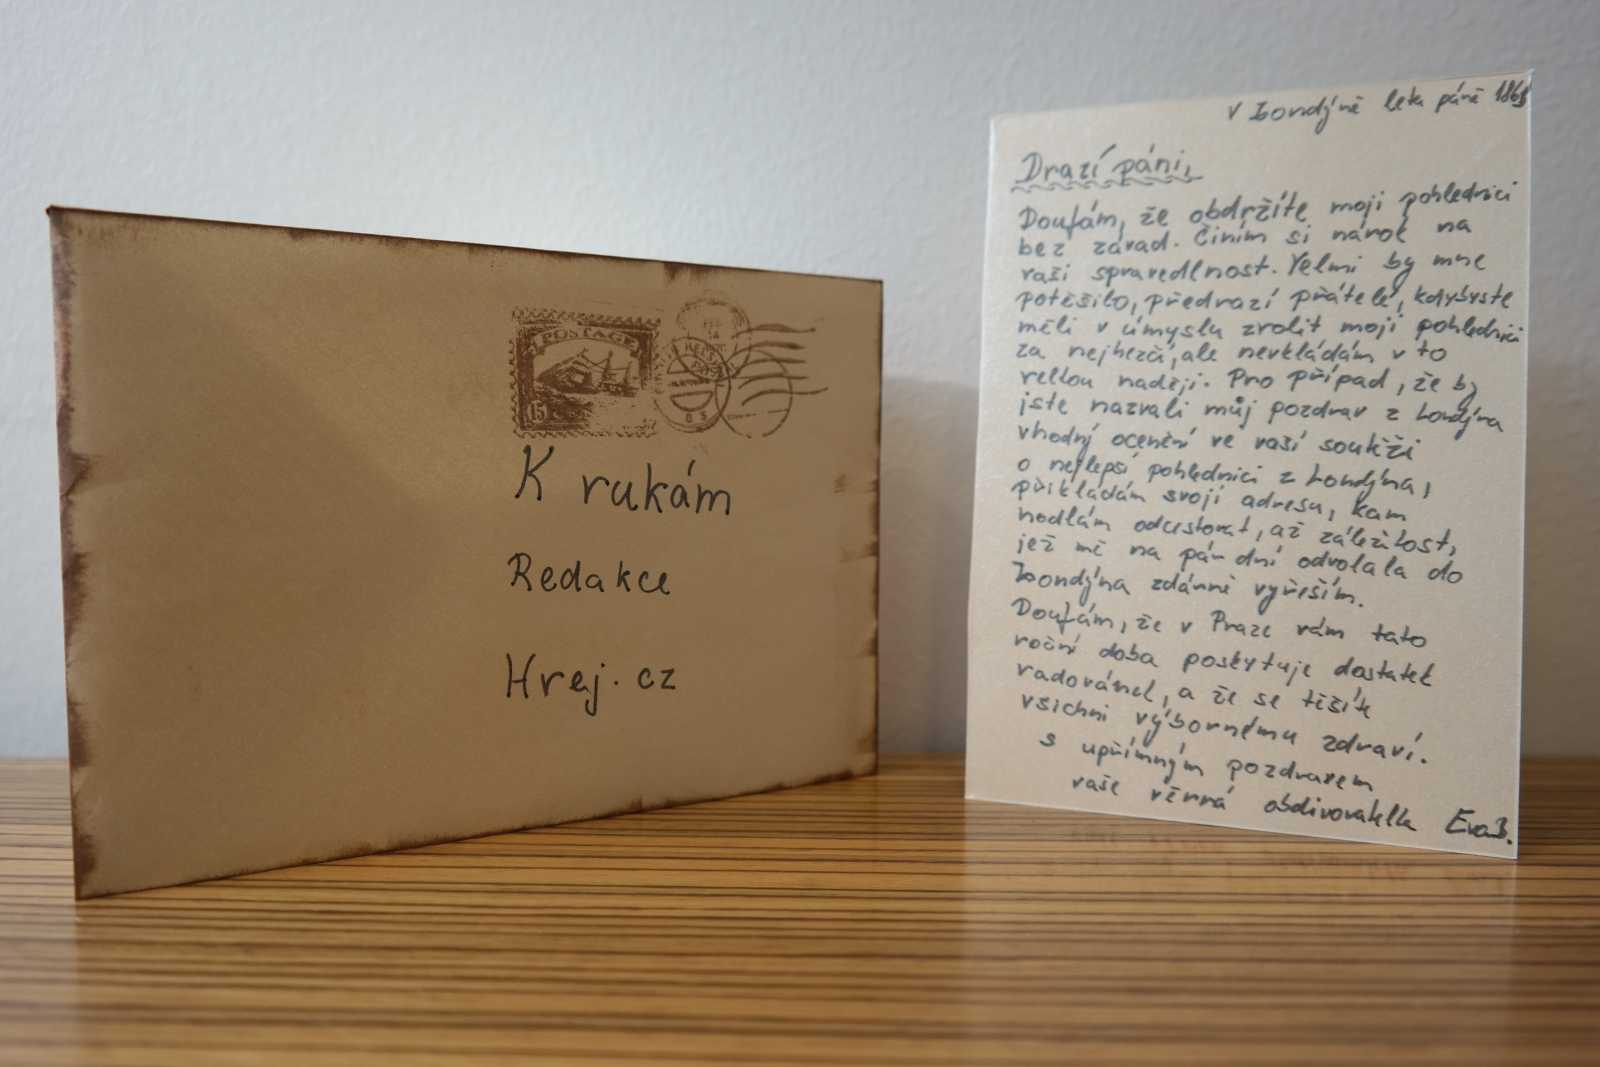 POSTAGE
15
K rukám
Redakce
Hrej.cz
V Londýně léta páně 1868
Drazí páni,
Doufám, že obdržíte moji pohlednici
bez závad. Činím si nárok na
vaši spravedlnost. Velmi by mne
potěšilo, předrazí přátelé, kdybyste
měli v úmyslu zvolit moji pohlednici
za nejhezčí, ale nevkládám v to
velkou naději. Pro případ, že by
jste nazvali můj pozdrav z Londýna
vhodný ocenění ve vaší soutěži
o nejlepší pohlednici z Londýna,
přikládám svoji adresu, kam
hodlám odcestovat, až záležitost,
jež mě na pár dní odvolala do
Londýna zdárně vyřeším.
Doufám, že v Praze vám tato
roční doba poskytuje dostatek
radovánek, a že se těšíte
všichni výbornému zdraví.
s upřímným pozdravem
vaše věrná obdivovatelka EvaB.